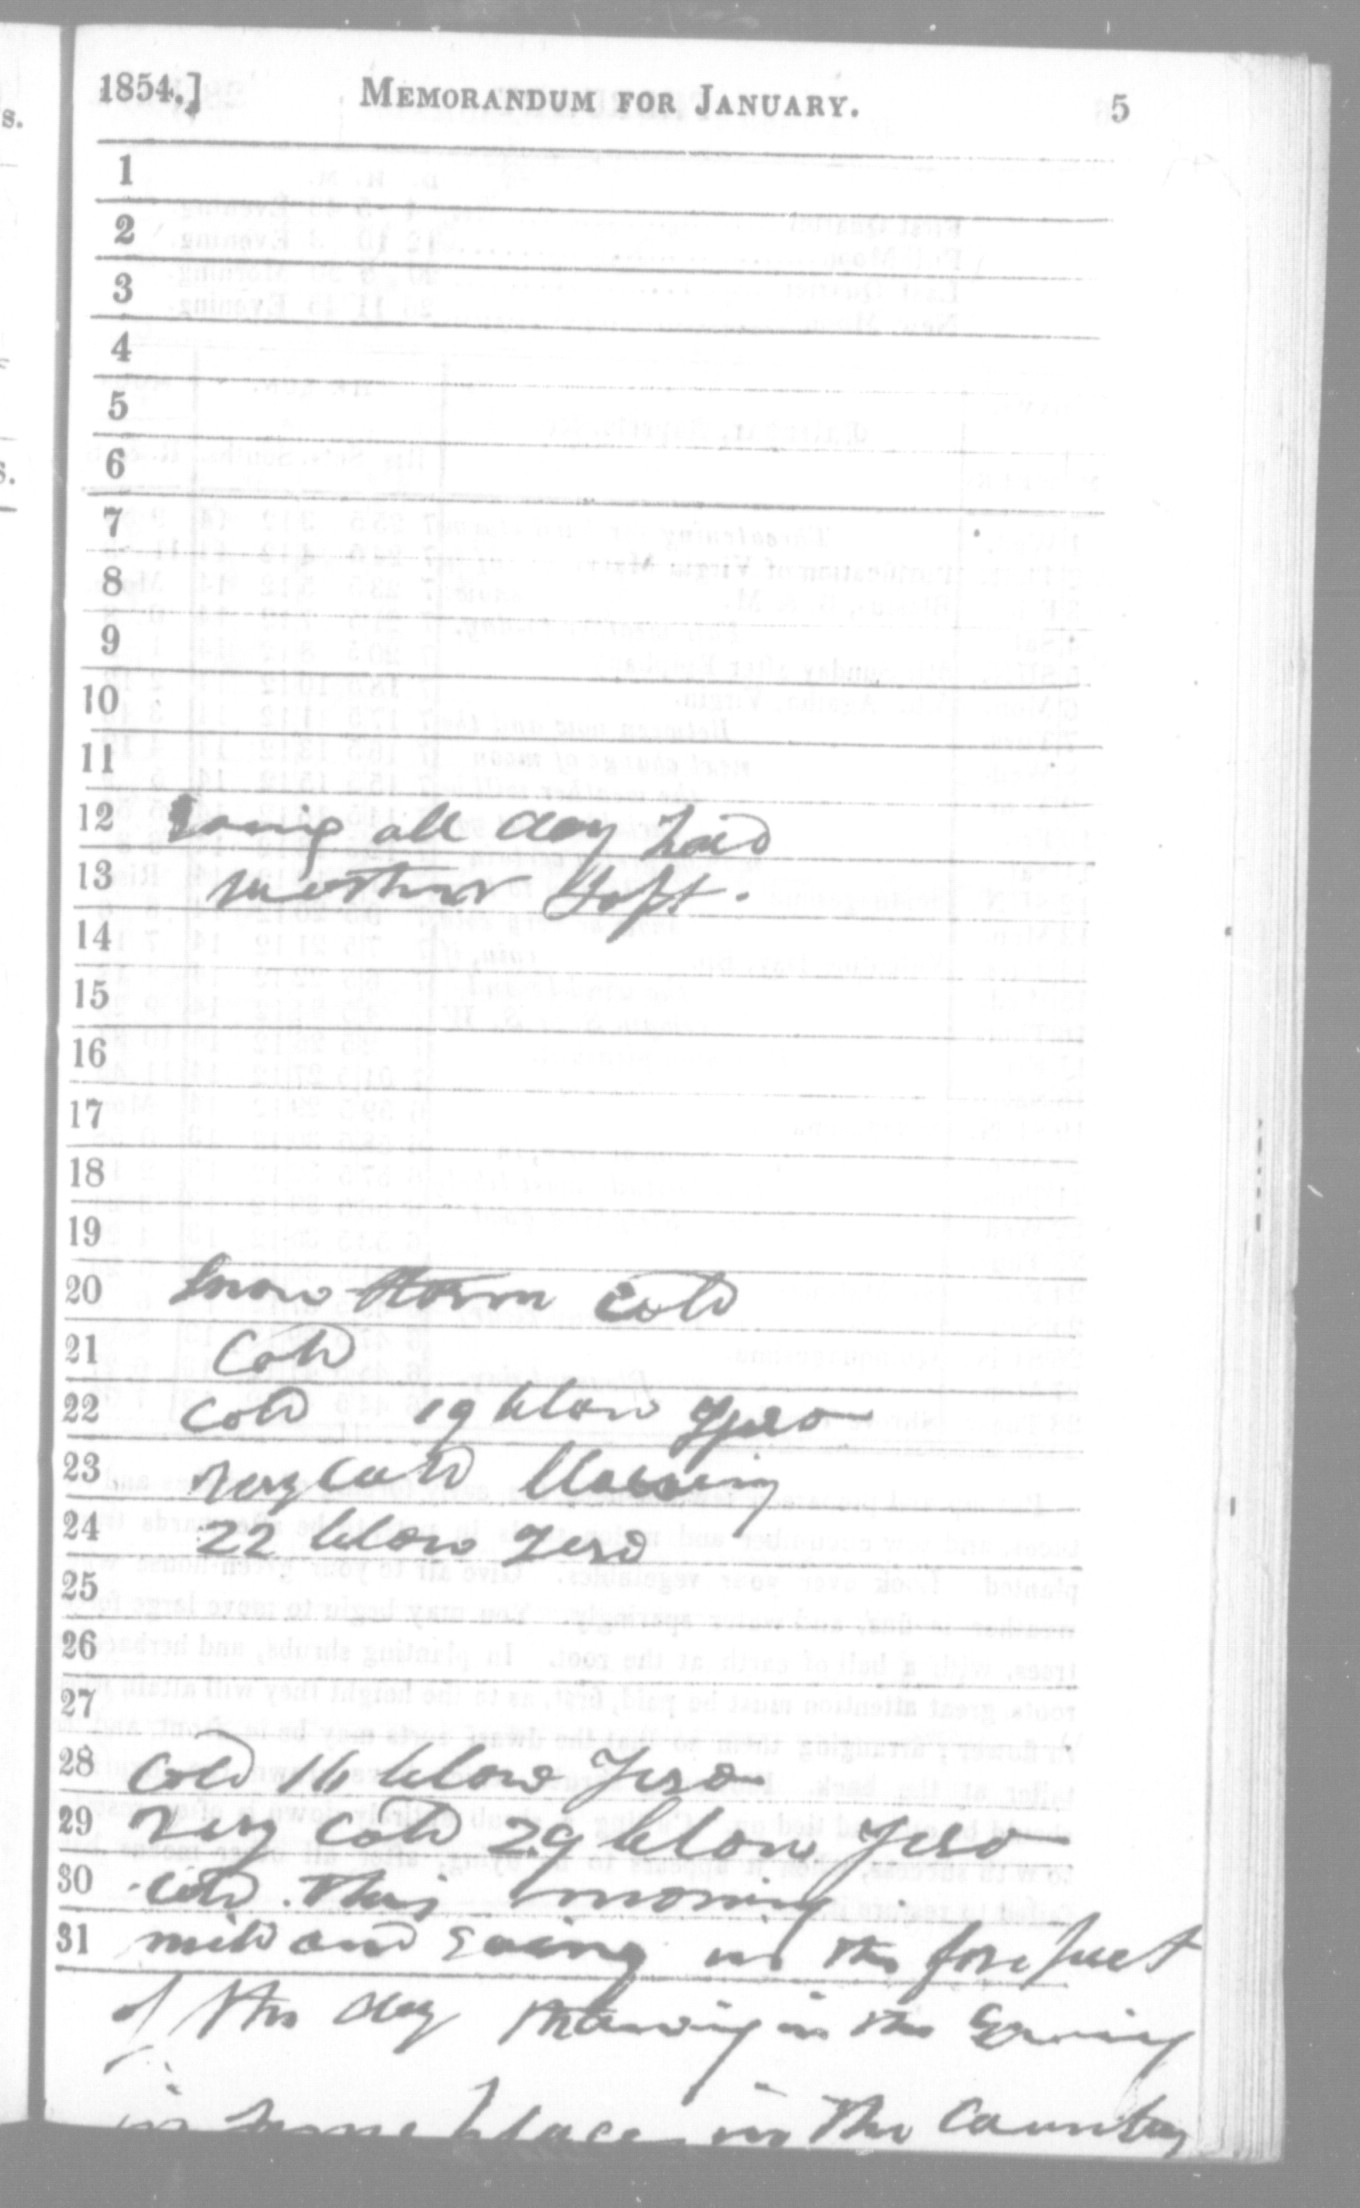 1854.] MEMORANDUM FOR JANUARY. 5
1
2
3
4
5
6
7
8
9
10
11
12 all day
13 Soft.
14
15
16
17
18
19
20 Snow Storm Cold
21 Cold
22 Cold 19 blow Zero
23 very Cold
24 22 below Zero
25
26
27
28 Cold 16 below Zero
29 Very Cold 29 below Zero
30 cold this morning
31 mild and in the fore part
of the day thawing in the Evening
in some places in the Country